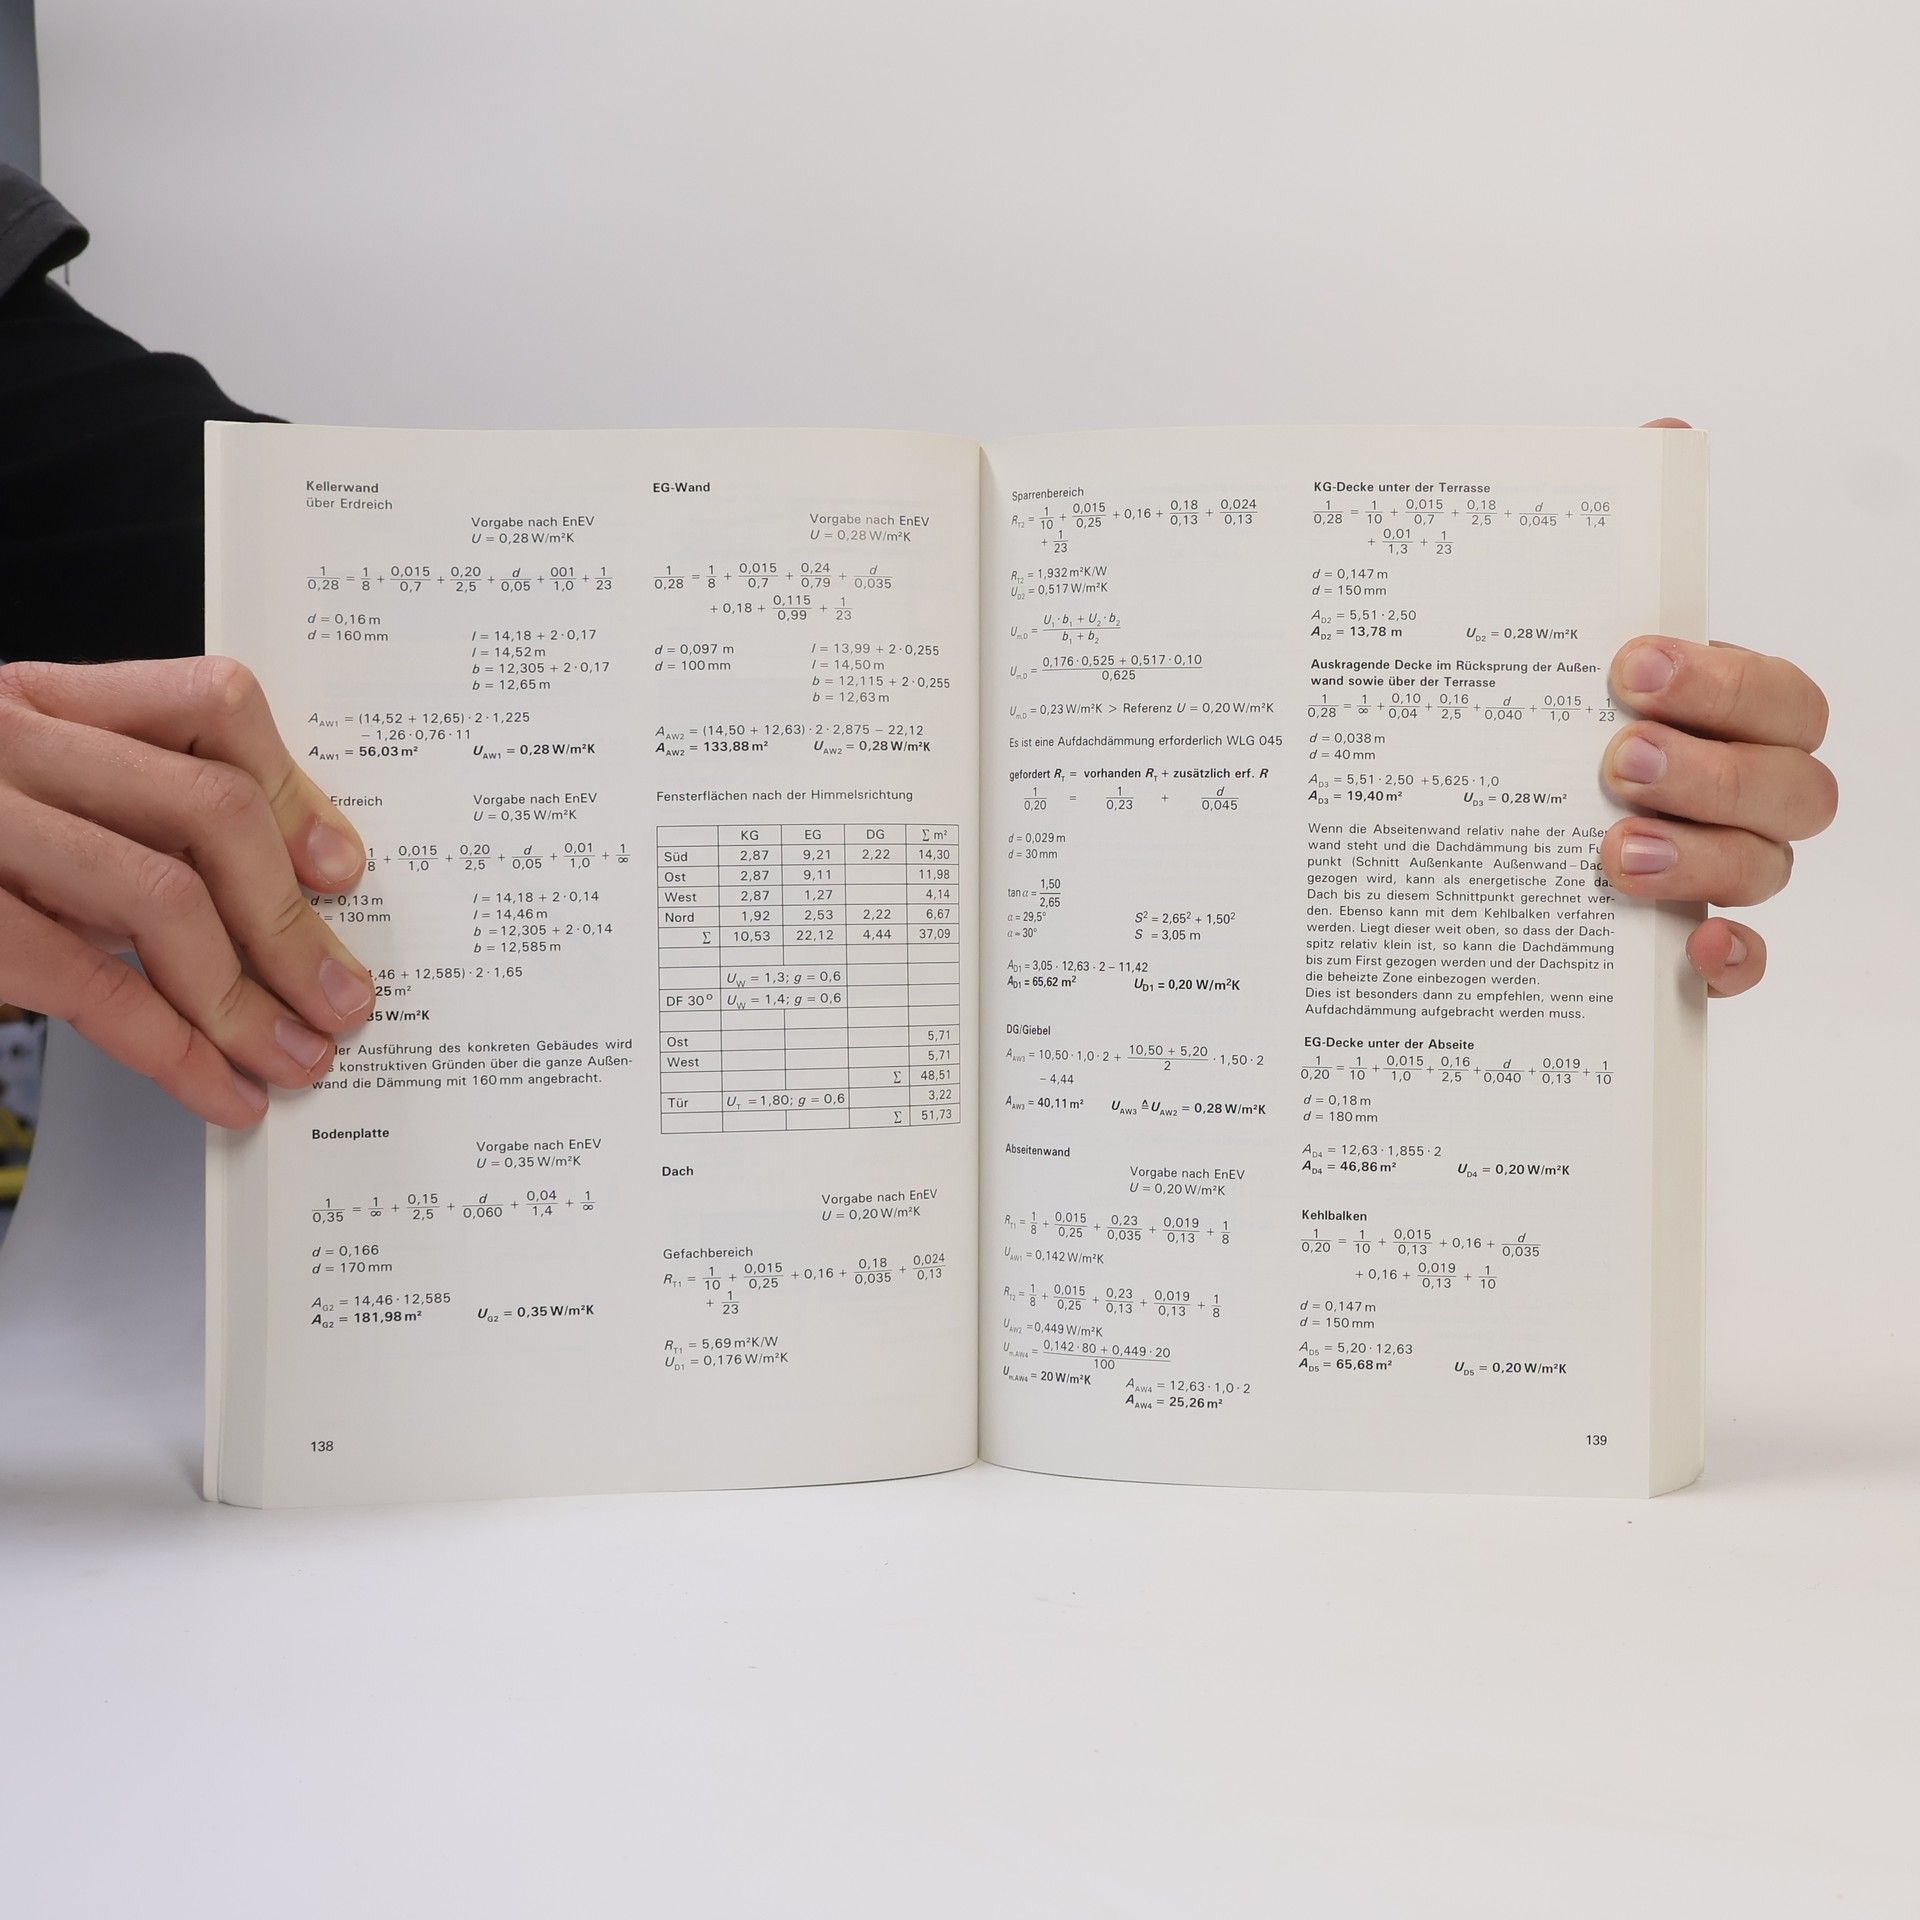 Kellerwand
über Erdreich
Vorgabe nach EnEV
U = 0,28 W/m²K
1/0,28 = 1/8 + 0,015/0,7 + 0,20/2,5 + d/0,05 + 001/1,0 + 1/23
d = 0,16 m
d = 160 mm
l = 14,18 + 2·0,17
l = 14,52 m
b = 12,305 + 2·0,17
b = 12,65 m
A_AW1 = (14,52 + 12,65)·2·1,225
− 1,26·0,76·11
A_AW1 = 56,03 m² U_AW1 = 0,28 W/m²K
Erdreich
Vorgabe nach EnEV
U = 0,35 W/m²K
1/8 + 0,015/1,0 + 0,20/2,5 + d/0,05 + 0,01/1,0 + 1/∞
d = 0,13 m
= 130 mm
l = 14,18 + 2·0,14
l = 14,46 m
b = 12,305 + 2·0,14
b = 12,585 m
,46 + 12,585)·2·1,65
25 m²
35 W/m²K
der Ausführung des konkreten Gebäudes wird
konstruktiven Gründen über die ganze Außen-
wand die Dämmung mit 160 mm angebracht.
Bodenplatte
Vorgabe nach EnEV
U = 0,35 W/m²K
1/0,35 = 1/∞ + 0,15/2,5 + d/0,060 + 0,04/1,4 + 1/∞
d = 0,166
d = 170 mm
A_G2 = 14,46·12,585
A_G2 = 181,98 m² U_G2 = 0,35 W/m²K
138
EG-Wand
Vorgabe nach EnEV
U = 0,28 W/m²K
1/0,28 = 1/8 + 0,015/0,7 + 0,24/0,79 + d/0,035
+ 0,18 + 0,115/0,99 + 1/23
d = 0,097 m
d = 100 mm
l = 13,99 + 2·0,255
l = 14,50 m
b = 12,115 + 2·0,255
b = 12,63 m
A_AW2 = (14,50 + 12,63)·2·2,875 − 22,12
A_AW2 = 133,88 m² U_AW2 = 0,28 W/m²K
Fensterflächen nach der Himmelsrichtung
KG EG DG Σ m²
Süd 2,87 9,21 2,22 14,30
Ost 2,87 9,11 11,98
West 2,87 1,27 4,14
Nord 1,92 2,53 2,22 6,67
Σ 10,53 22,12 4,44 37,09
U_W = 1,3; g = 0,6
DF 30° U_W = 1,4; g = 0,6
Ost 5,71
West 5,71
Σ 48,51
Tür U_T = 1,80; g = 0,6 3,22
Σ 51,73
Dach
Vorgabe nach EnEV
U = 0,20 W/m²K
Gefachbereich
R_T1 = 1/10 + 0,015/0,25 + 0,16 + 0,18/0,035 + 0,024/0,13
+ 1/23
R_T1 = 5,69 m²K/W
U_D1 = 0,176 W/m²K
Sparrenbereich
R_T2 = 1/10 + 0,015/0,25 + 0,16 + 0,18/0,13 + 0,024/0,13
+ 1/23
R_T2 = 1,932 m²K/W
U_D2 = 0,517 W/m²K
U_m,D = U₁·b₁ + U₂·b₂/b₁ + b₂
U_m,D = 0,176·0,525 + 0,517·0,10/0,625
U_m,D = 0,23 W/m²K > Referenz U = 0,20 W/m²K
Es ist eine Aufdachdämmung erforderlich WLG 045
gefordert R_T = vorhanden R_T + zusätzlich erf. R
1/0,20 = 1/0,23 + d/0,045
d = 0,029 m
d = 30 mm
tan α = 1,50/2,65
α = 29,5° S² = 2,65² + 1,50²
α ≈ 30° S = 3,05 m
A_D1 = 3,05·12,63·2 − 11,42
A_D1 = 65,62 m² U_D1 = 0,20 W/m²K
DG/Giebel
A_AW3 = 10,50·1,0·2 + 10,50 + 5,20/2 ·1,50·2
− 4,44
A_AW3 = 40,11 m² U_AW3 ≙ U_AW2 = 0,28 W/m²K
Abseitenwand
Vorgabe nach EnEV
U = 0,20 W/m²K
R_T1 = 1/8 + 0,015/0,25 + 0,23/0,035 + 0,019/0,13 + 1/8
U_AW1 = 0,142 W/m²K
R_T2 = 1/8 + 0,015/0,25 + 0,23/0,13 + 0,019/0,13 + 1/8
U_AW2 = 0,449 W/m²K
U_m,AW4 = 0,142·80 + 0,449·20/100
U_m,AW4 = 20 W/m²K
A_AW4 = 12,63·1,0·2
A_AW4 = 25,26 m²
KG-Decke unter der Terrasse
1/0,28 = 1/10 + 0,015/0,7 + 0,18/2,5 + d/0,045 + 0,06/1,4
+ 0,01/1,3 + 1/23
d = 0,147 m
d = 150 mm
A_D2 = 5,51·2,50
A_D2 = 13,78 m U_D2 = 0,28 W/m²K
Auskragende Decke im Rücksprung der Außen-
wand sowie über der Terrasse
1/0,28 = 1/∞ + 0,10/0,04 + 0,16/2,5 + d/0,040 + 0,015/1,0 + 1/23
d = 0,038 m
d = 40 mm
A_D3 = 5,51·2,50 + 5,625·1,0
A_D3 = 19,40 m² U_D3 = 0,28 W/m²
Wenn die Abseitenwand relativ nahe der Außen
wand steht und die Dachdämmung bis zum Fu
punkt (Schnitt Außenkante Außenwand – Dac
gezogen wird, kann als energetische Zone das
Dach bis zu diesem Schnittpunkt gerechnet wer-
den. Ebenso kann mit dem Kehlbalken verfahren
werden. Liegt dieser weit oben, so dass der Dach-
spitz relativ klein ist, so kann die Dachdämmung
bis zum First gezogen werden und der Dachspitz in
die beheizte Zone einbezogen werden.
Dies ist besonders dann zu empfehlen, wenn eine
Aufdachdämmung aufgebracht werden muss.
EG-Decke unter der Abseite
1/0,20 = 1/10 + 0,015/1,0 + 0,16/2,5 + d/0,040 + 0,019/0,13 + 1/10
d = 0,18 m
d = 180 mm
A_D4 = 12,63·1,855·2
A_D4 = 46,86 m² U_D4 = 0,20 W/m²K
Kehlbalken
1/0,20 = 1/10 + 0,015/0,13 + 0,16 + d/0,035
+ 0,16 + 0,019/0,13 + 1/10
d = 0,147 m
d = 150 mm
A_D5 = 5,20·12,63
A_D5 = 65,68 m² U_D5 = 0,20 W/m²K
139